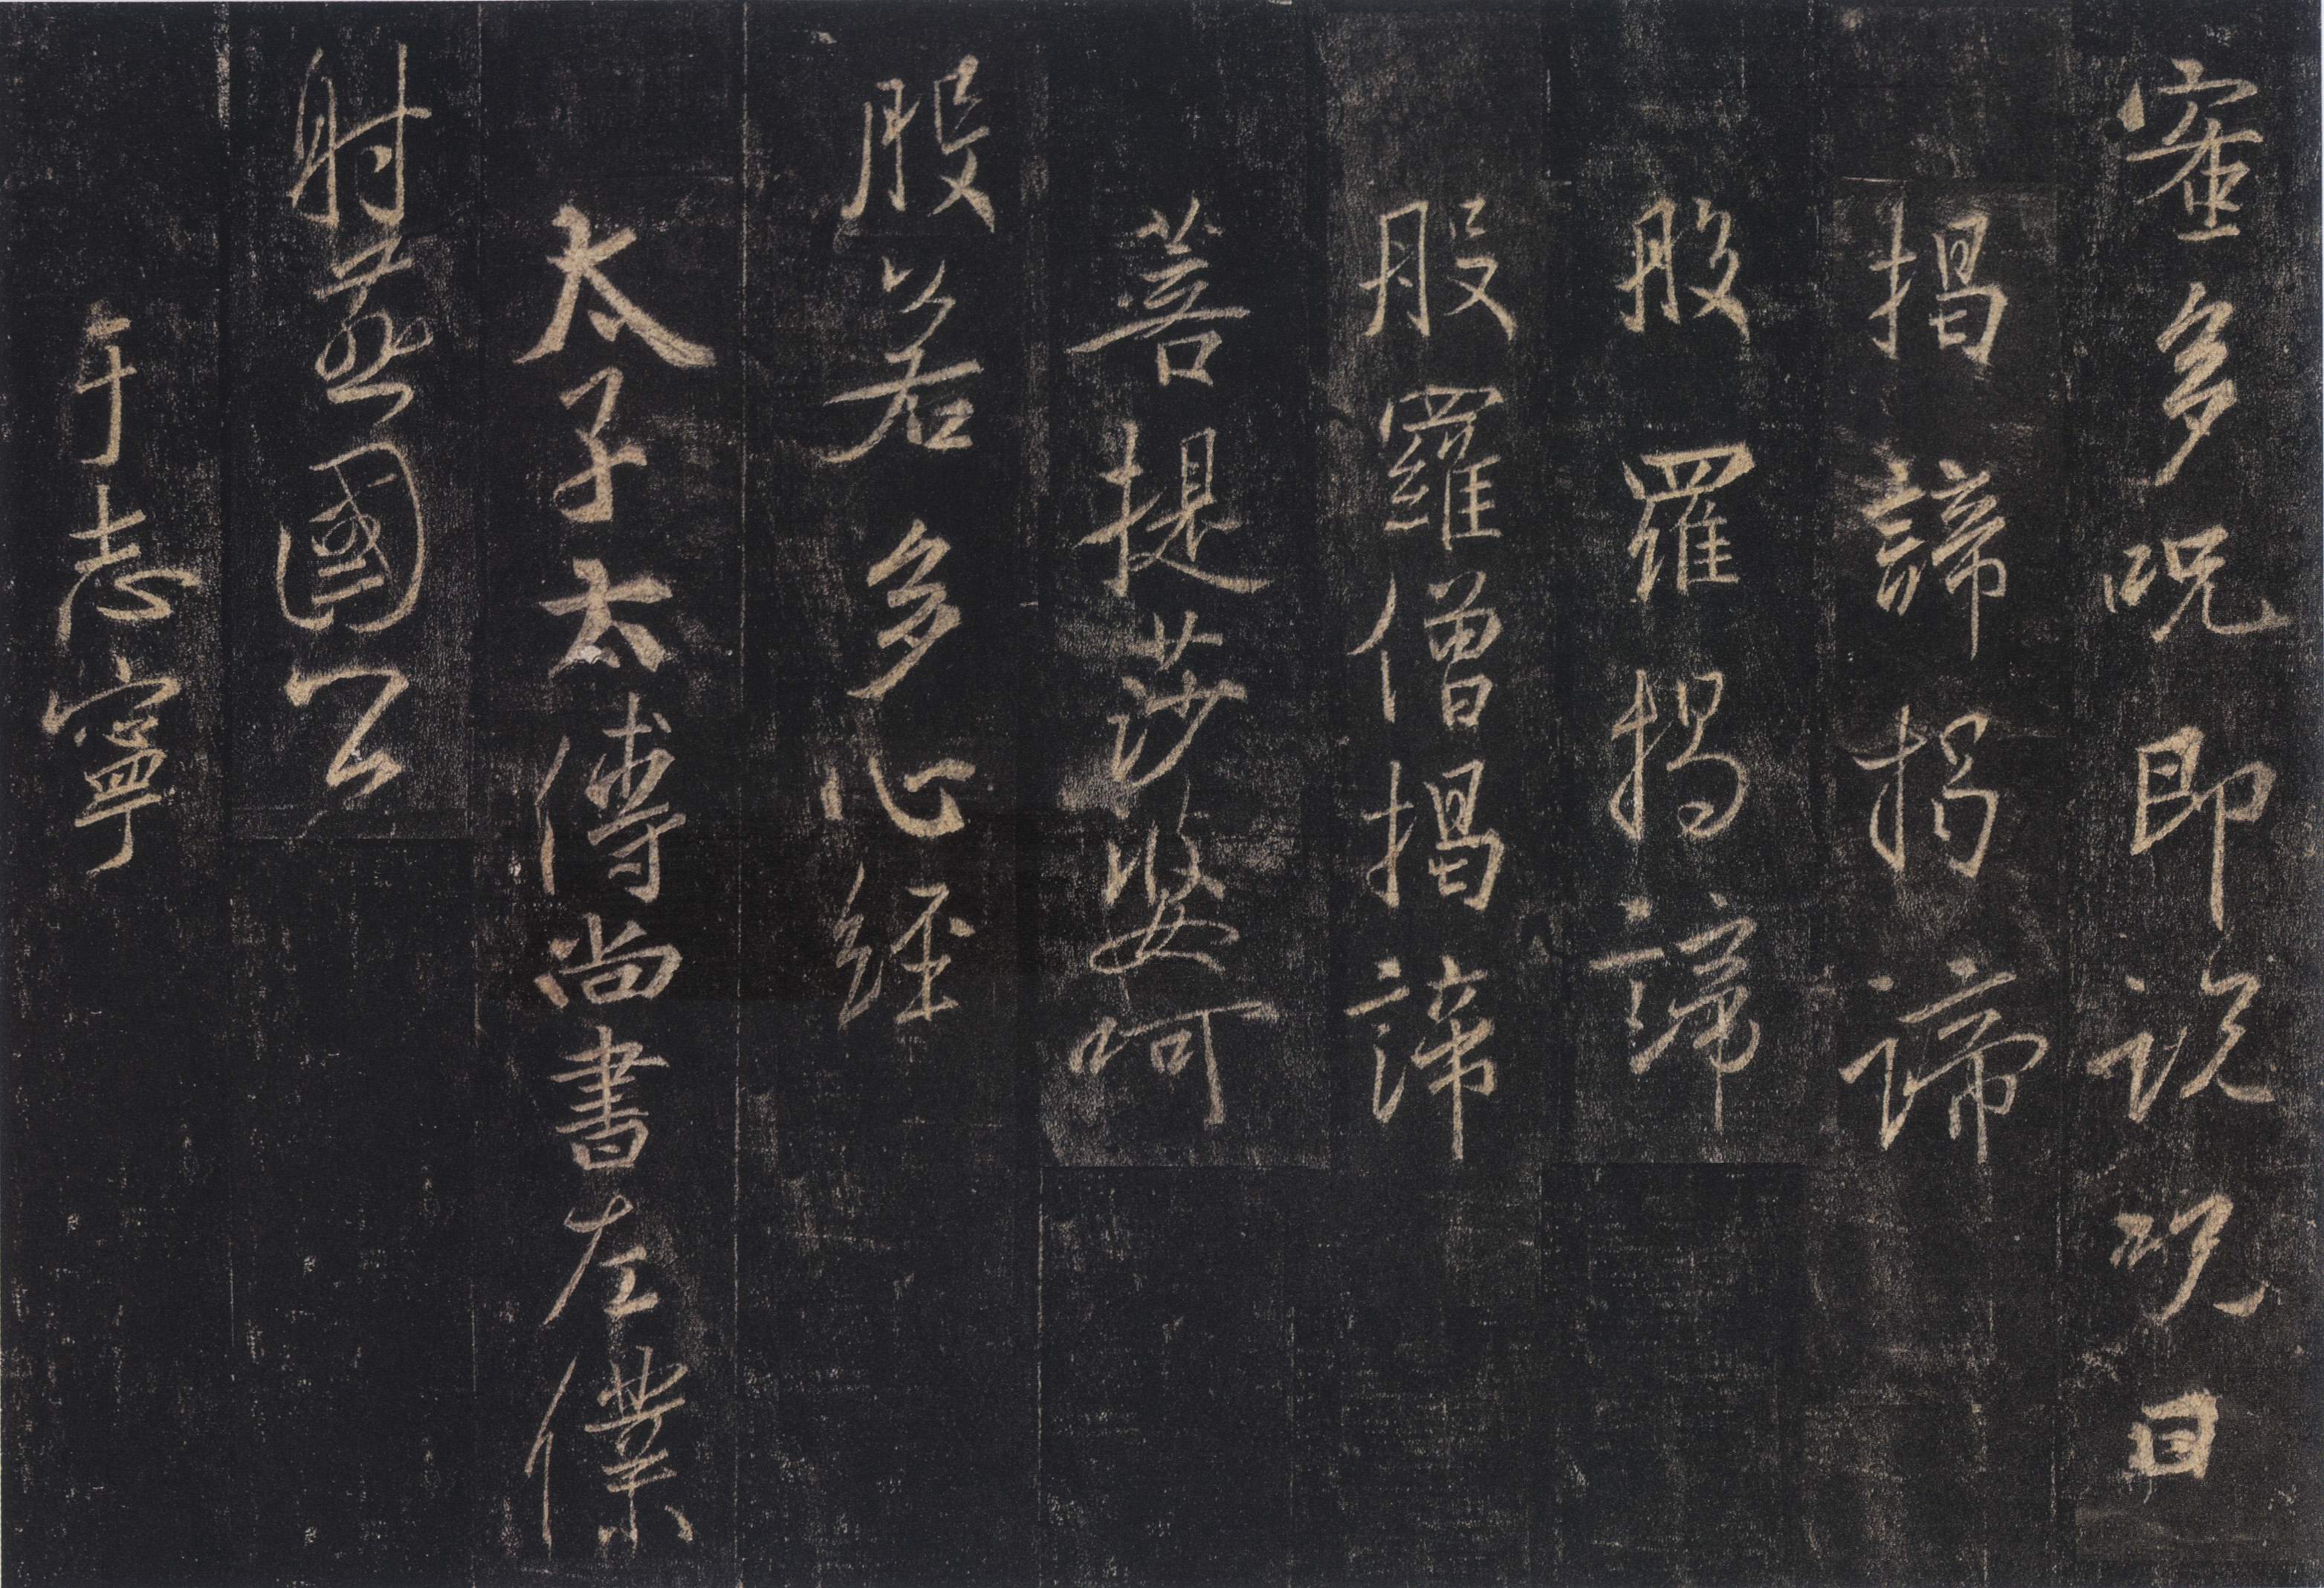 蜜多呪即說呪曰
揭諦揭諦
般羅揭諦
般羅僧揭諦
菩提莎婆呵
般若多心經
太子太傅尚書左僕
射燕國公
于志寧